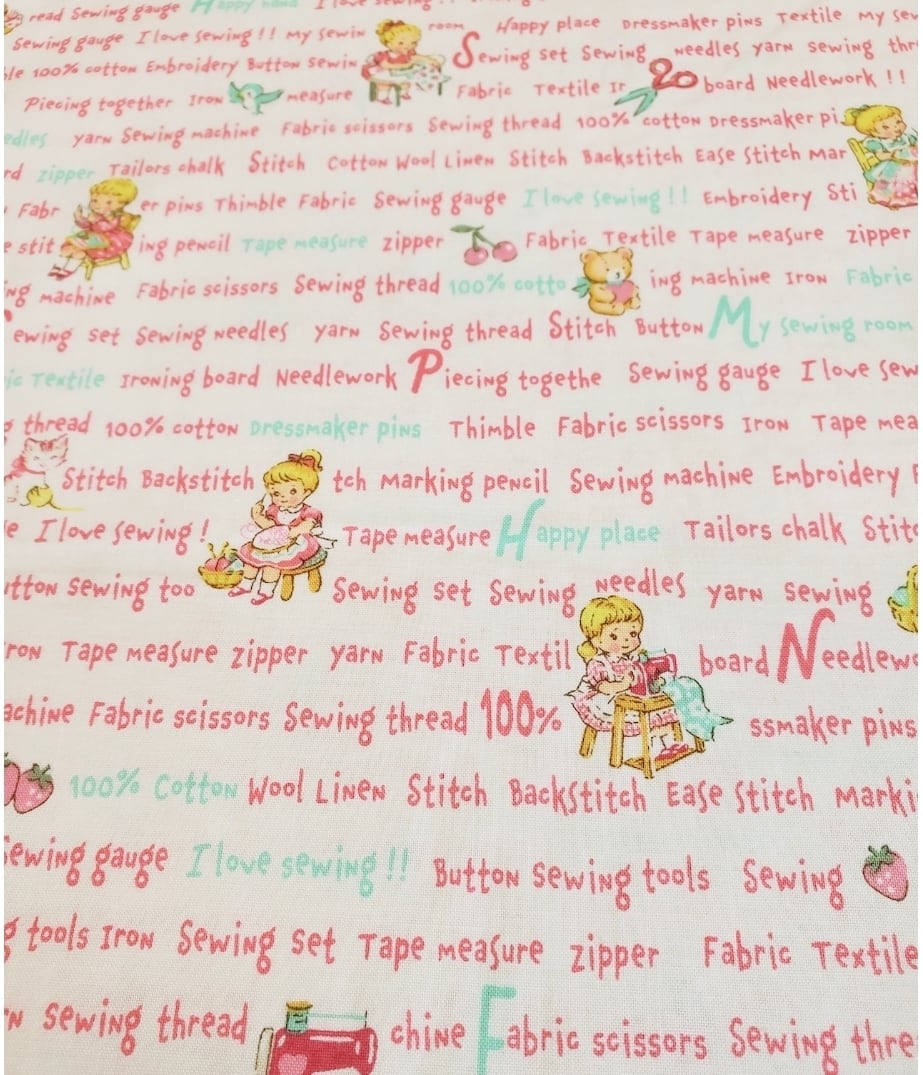 read Sewing gauge Happy hand I love sewing!!
Sewing gauge I love Sewing!! My Sewin room Happy place Dressmaker pins Textile My Sew
le 100% cotton Embroidery Button Sewin Sewing set Sewing needles yarn Sewing thr
Piecing together Iron measure Fabric Textile Ir board Needlework !!
edles yarn Sewing machine Fabric scissors Sewing thread 100% cotton Dressmaker pi
rd zipper Tailors chalk Stitch Cotton Wool Linen Stitch Backstitch Ease Stitch Mar
Fabr er pins Thimble Fabric Sewing gauge I love Sewing!! Embroidery Sti
e stit ing pencil Tape measure zipper Fabric Textile Tape measure zipper
ng machine Fabric scissors Sewing thread 100% cotto ing machine Iron Fabric
ewing set Sewing Needles yarn Sewing thread Stitch Button My Sewing room
ic Textile Ironing board Needlework Piecing togethe Sewing gauge I love Sew
g thread 100% cotton Dressmaker pins Thimble Fabric scissors Iron Tape mea
Stitch Backstitch tch Marking pencil Sewing machine Embroidery
e I love Sewing! Tape measure Happy place Tailors chalk Stitc
utton Sewing too Sewing set Sewing needles yarn Sewing
ron Tape measure zipper yarn Fabric Textil board Needlewo
achine Fabric scissors Sewing thread 100% ssmaker pins
100% Cotton Wool Linen Stitch Backstitch Ease Stitch Marki
Sewing gauge I love sewing!! Button Sewing tools Sewing
g tools Iron Sewing set Tape measure zipper Fabric Textile
n Sewing thread chine Fabric scissors Sewing thre